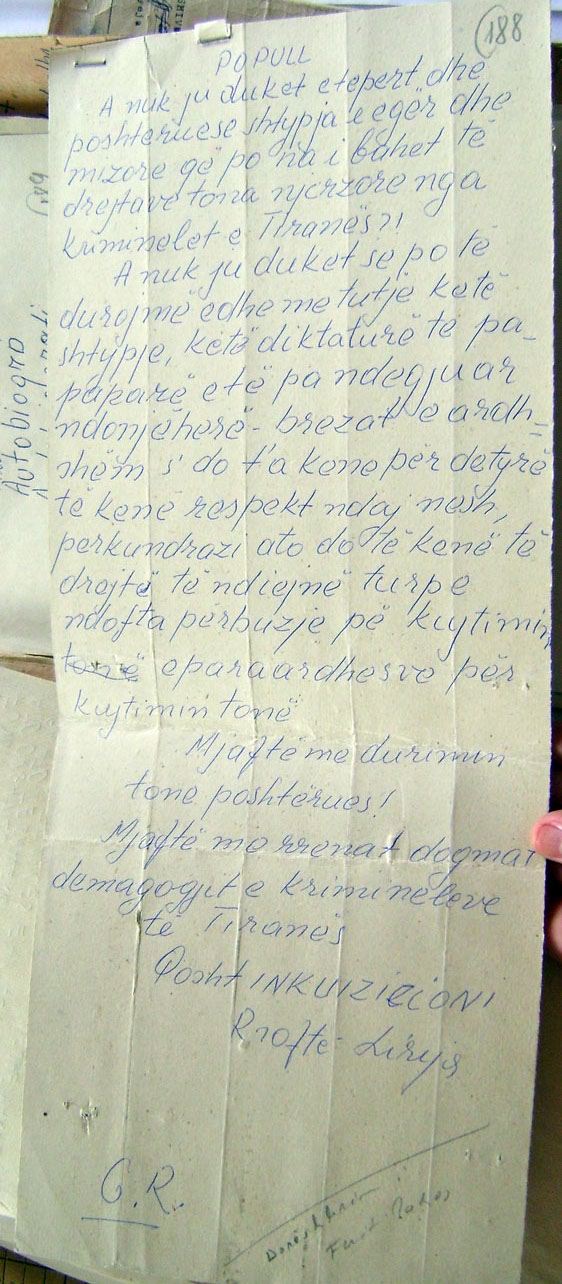 188
POPULL
A nuk ju duket e tepërt dhe
poshtëruese shtypja e egër dhe
mizore që po na i bahet të
drejtave tona njerzore nga
kriminelet e Tiranës?!
A nuk ju duket se po të
durojmë edhe me tutje ketë
shtypje, ketë diktaturë të pa-
paparë e të pa ndegjuar
ndonjëherë - brezat e ardh=
shëm s' do t'a kene për detyrë
të kenë respekt ndaj nesh,
perkundrazi ato do të kenë të
drejtë të ndiejnë turp e
ndofta përbuzje pë kujtimin
tonë e paraardhesve për
kujtimin tonë
Mjaftë me durimin
tone poshtërues!
Mjaftë me rrenat dogmat
demagogjit e krimineleve
të Tiranës
Posht INKUIZICIONI
Rroftë Lirija
G.R.
Dorëshkrim
Autobiogra